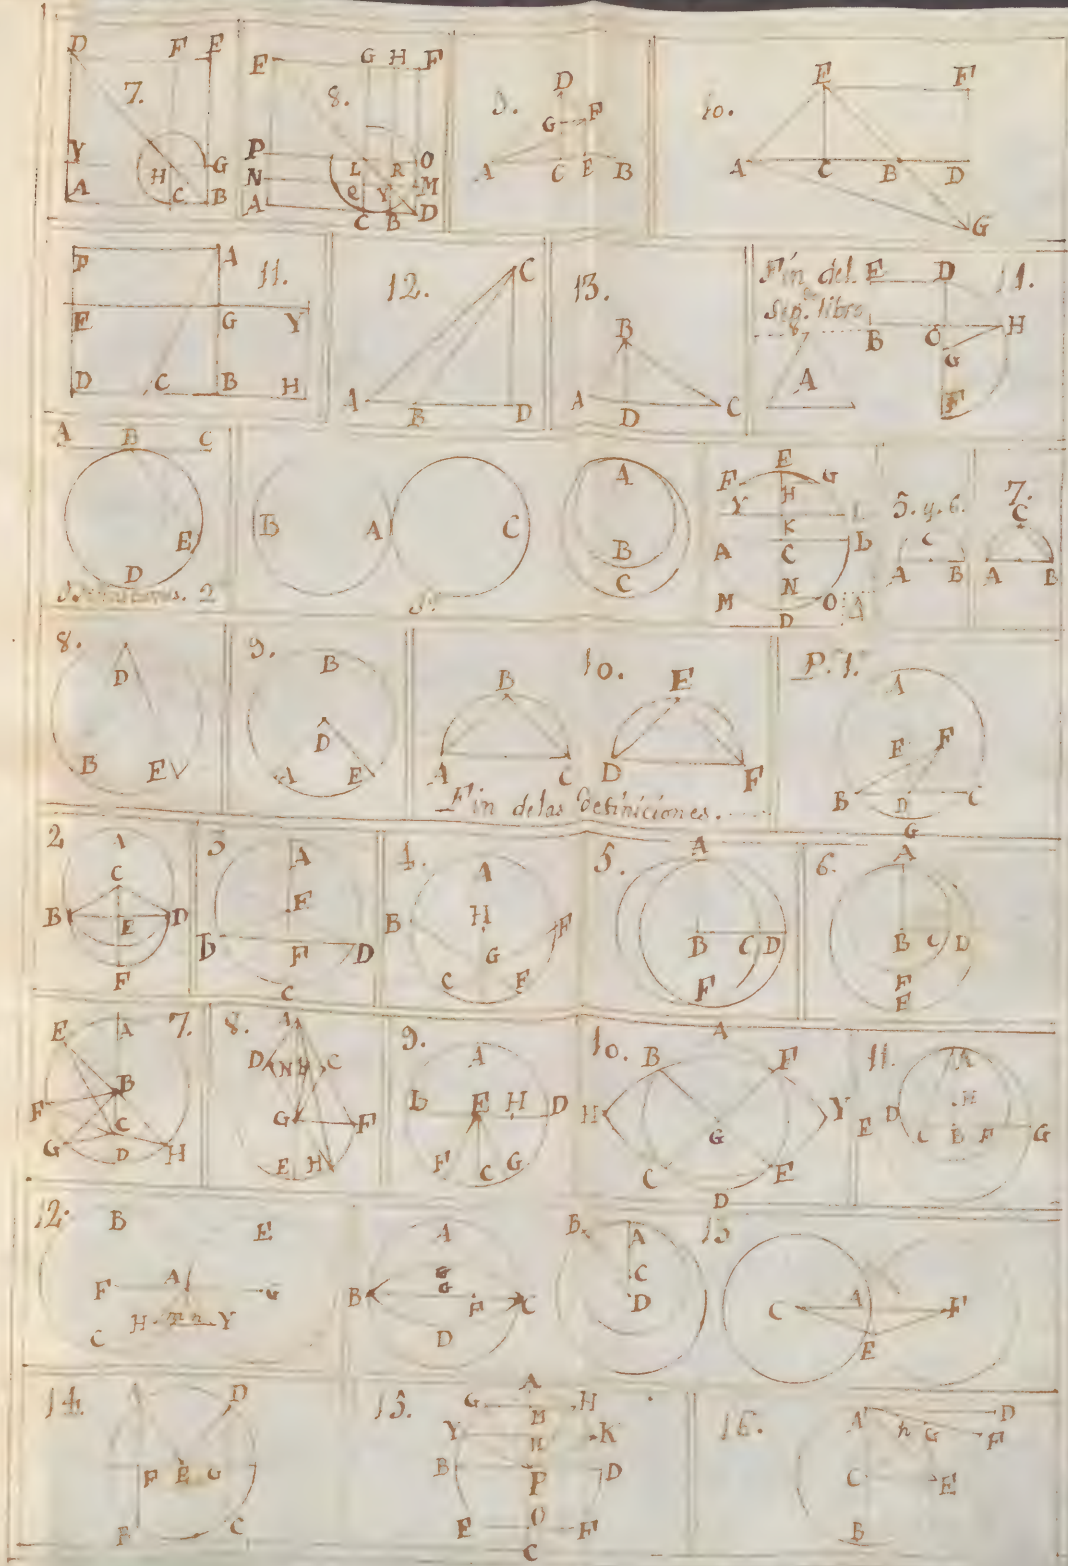 D F E
7.
Y H G
A C B
G H F
E
8.
P L R O
N e Y M
A C B D
D
9.
G F
A C E B
E F
10.
A C B D
G
F A
11.
E G Y
D C B H
12.
C
A B D
13.
B
A D C
Fin del
Seg.do libro
A
E D
11.
B C H
G
F
A B C
E
D
2
B A C
A
B
C
E
F H G
Y L
K
A C b
N
M O
D
4
5. y 6.
C
A B
7.
C
A B
8.
D
B E
9.
B
D
A E
10.
B
A C
E
D F
Fin delas Definiciones.
P. 1.
A
E F
B D C
G
2
A
C
B E D
F
3
A
E
b F D
C
4.
A
B H F
G
C F
5.
A
B C D
F
6.
A
B C D
F
E
7.
E A
B
F C
G D H
8.
A
D N B C
G F
E H
9.
A
b E H D
F C G
10.
A
B F
H Y
G
C E
D
11.
A
H
D
E C B F G
12.
B E
F A G
H Y
C
A
G
B F C
D
B A
C
D
13
C A F
E
14.
A D
F E G
B C
15.
A
G H
M
Y N K
B D
P
E O F
C
16.
A D
h G F
C E
B